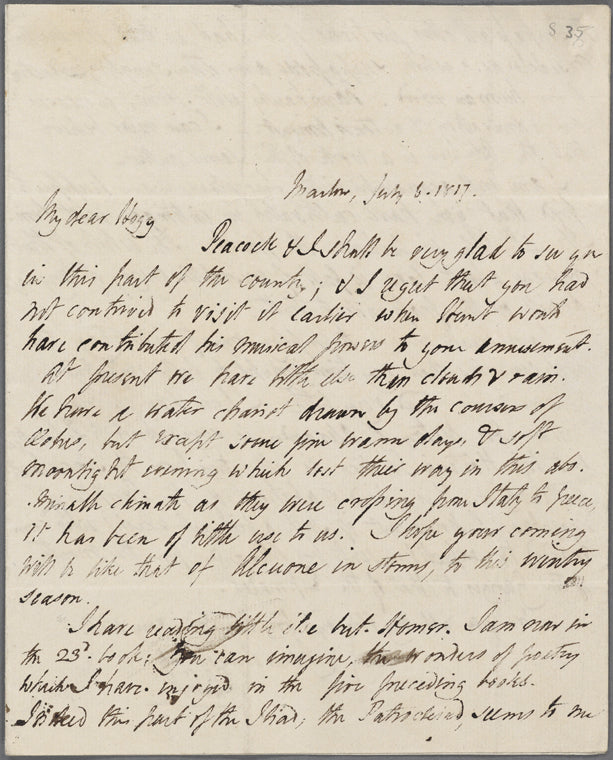 S 35
Marlow, July 6. 1817.
My dear Hogg
Peacock & I shall be very glad to see you
in this part of the country; & I regret that you had
not contrived to visit it earlier when Hunt would
have contributed his musical powers to your amusement.
At present we have little else than clouds & rain.
We have a water chariot drawn by the coursers of
Eolus, but except some fine warm days, & soft
moonlight evening which lost their way in this abo-
minable climate as they were crossing from Italy to Greece,
it has been of little use to us. I hope your coming
will be like that of Alcuone in storms, to this wintry
season.
I have reading little else but Homer. I am now in
the 23d. book; you can imagine, the wonders of poetry
which I have enjoyed in the five preceding books.
Indeed this part of the Iliad, the Patrocleiad, seems to me